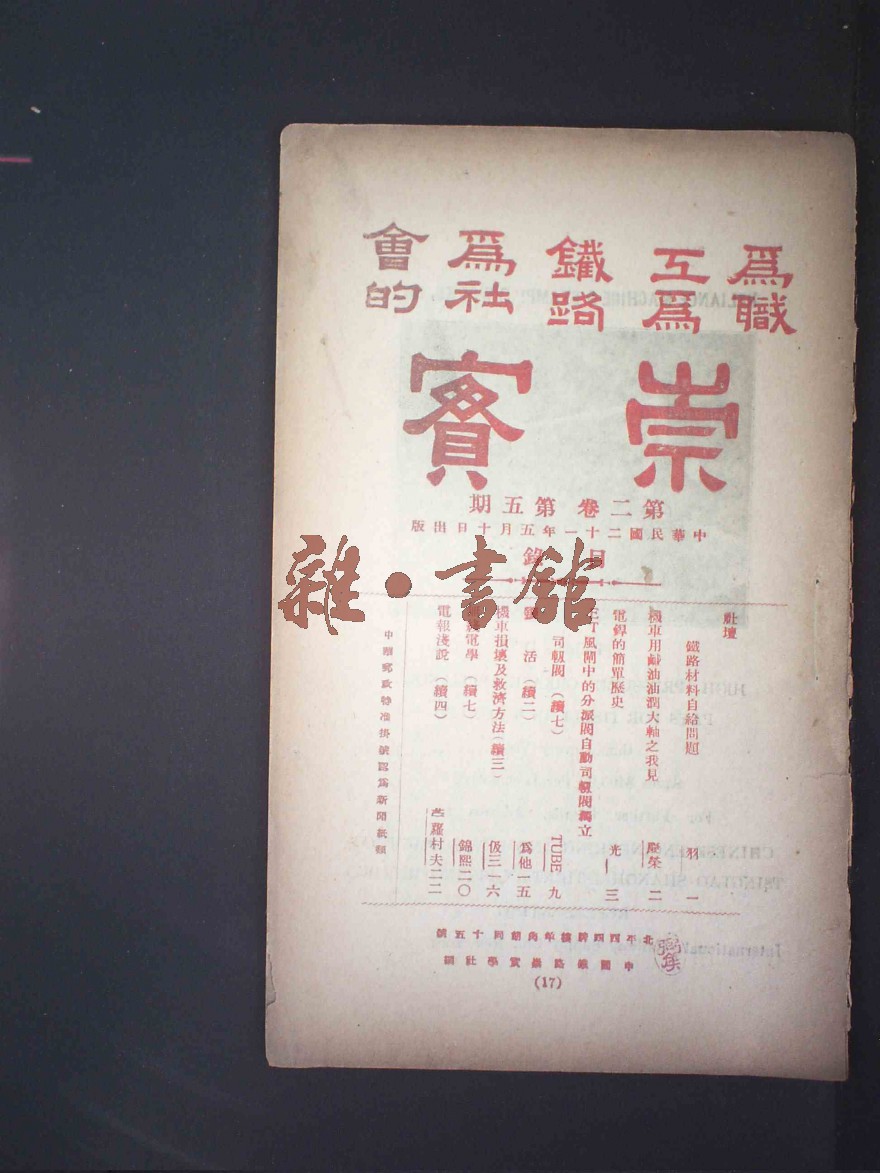 為職
工為
鐵路
為社
會的
崇實
第二卷 第五期
中華民國二十一年五月十日出版
目錄
社壇
鐵路材料自給問題 羽 一
機車用鹹油油潤大軸之我見 二
電銲的簡單歷史 光 三
ET風閘中的分派閥自動司軔閥獨立
司軔閥（續七） TUBE 九
活（續二） 為他 一五
機車損壞及救濟方法（續三） 伋三 一六
電學（續七） 錦熙 二〇
電報淺說（續四） 羅村夫 二二
中華郵政特准掛號認為新聞紙類
北平西四牌樓羊角胡同十五號
中國鐵路崇實學社
(17)
雜·書館